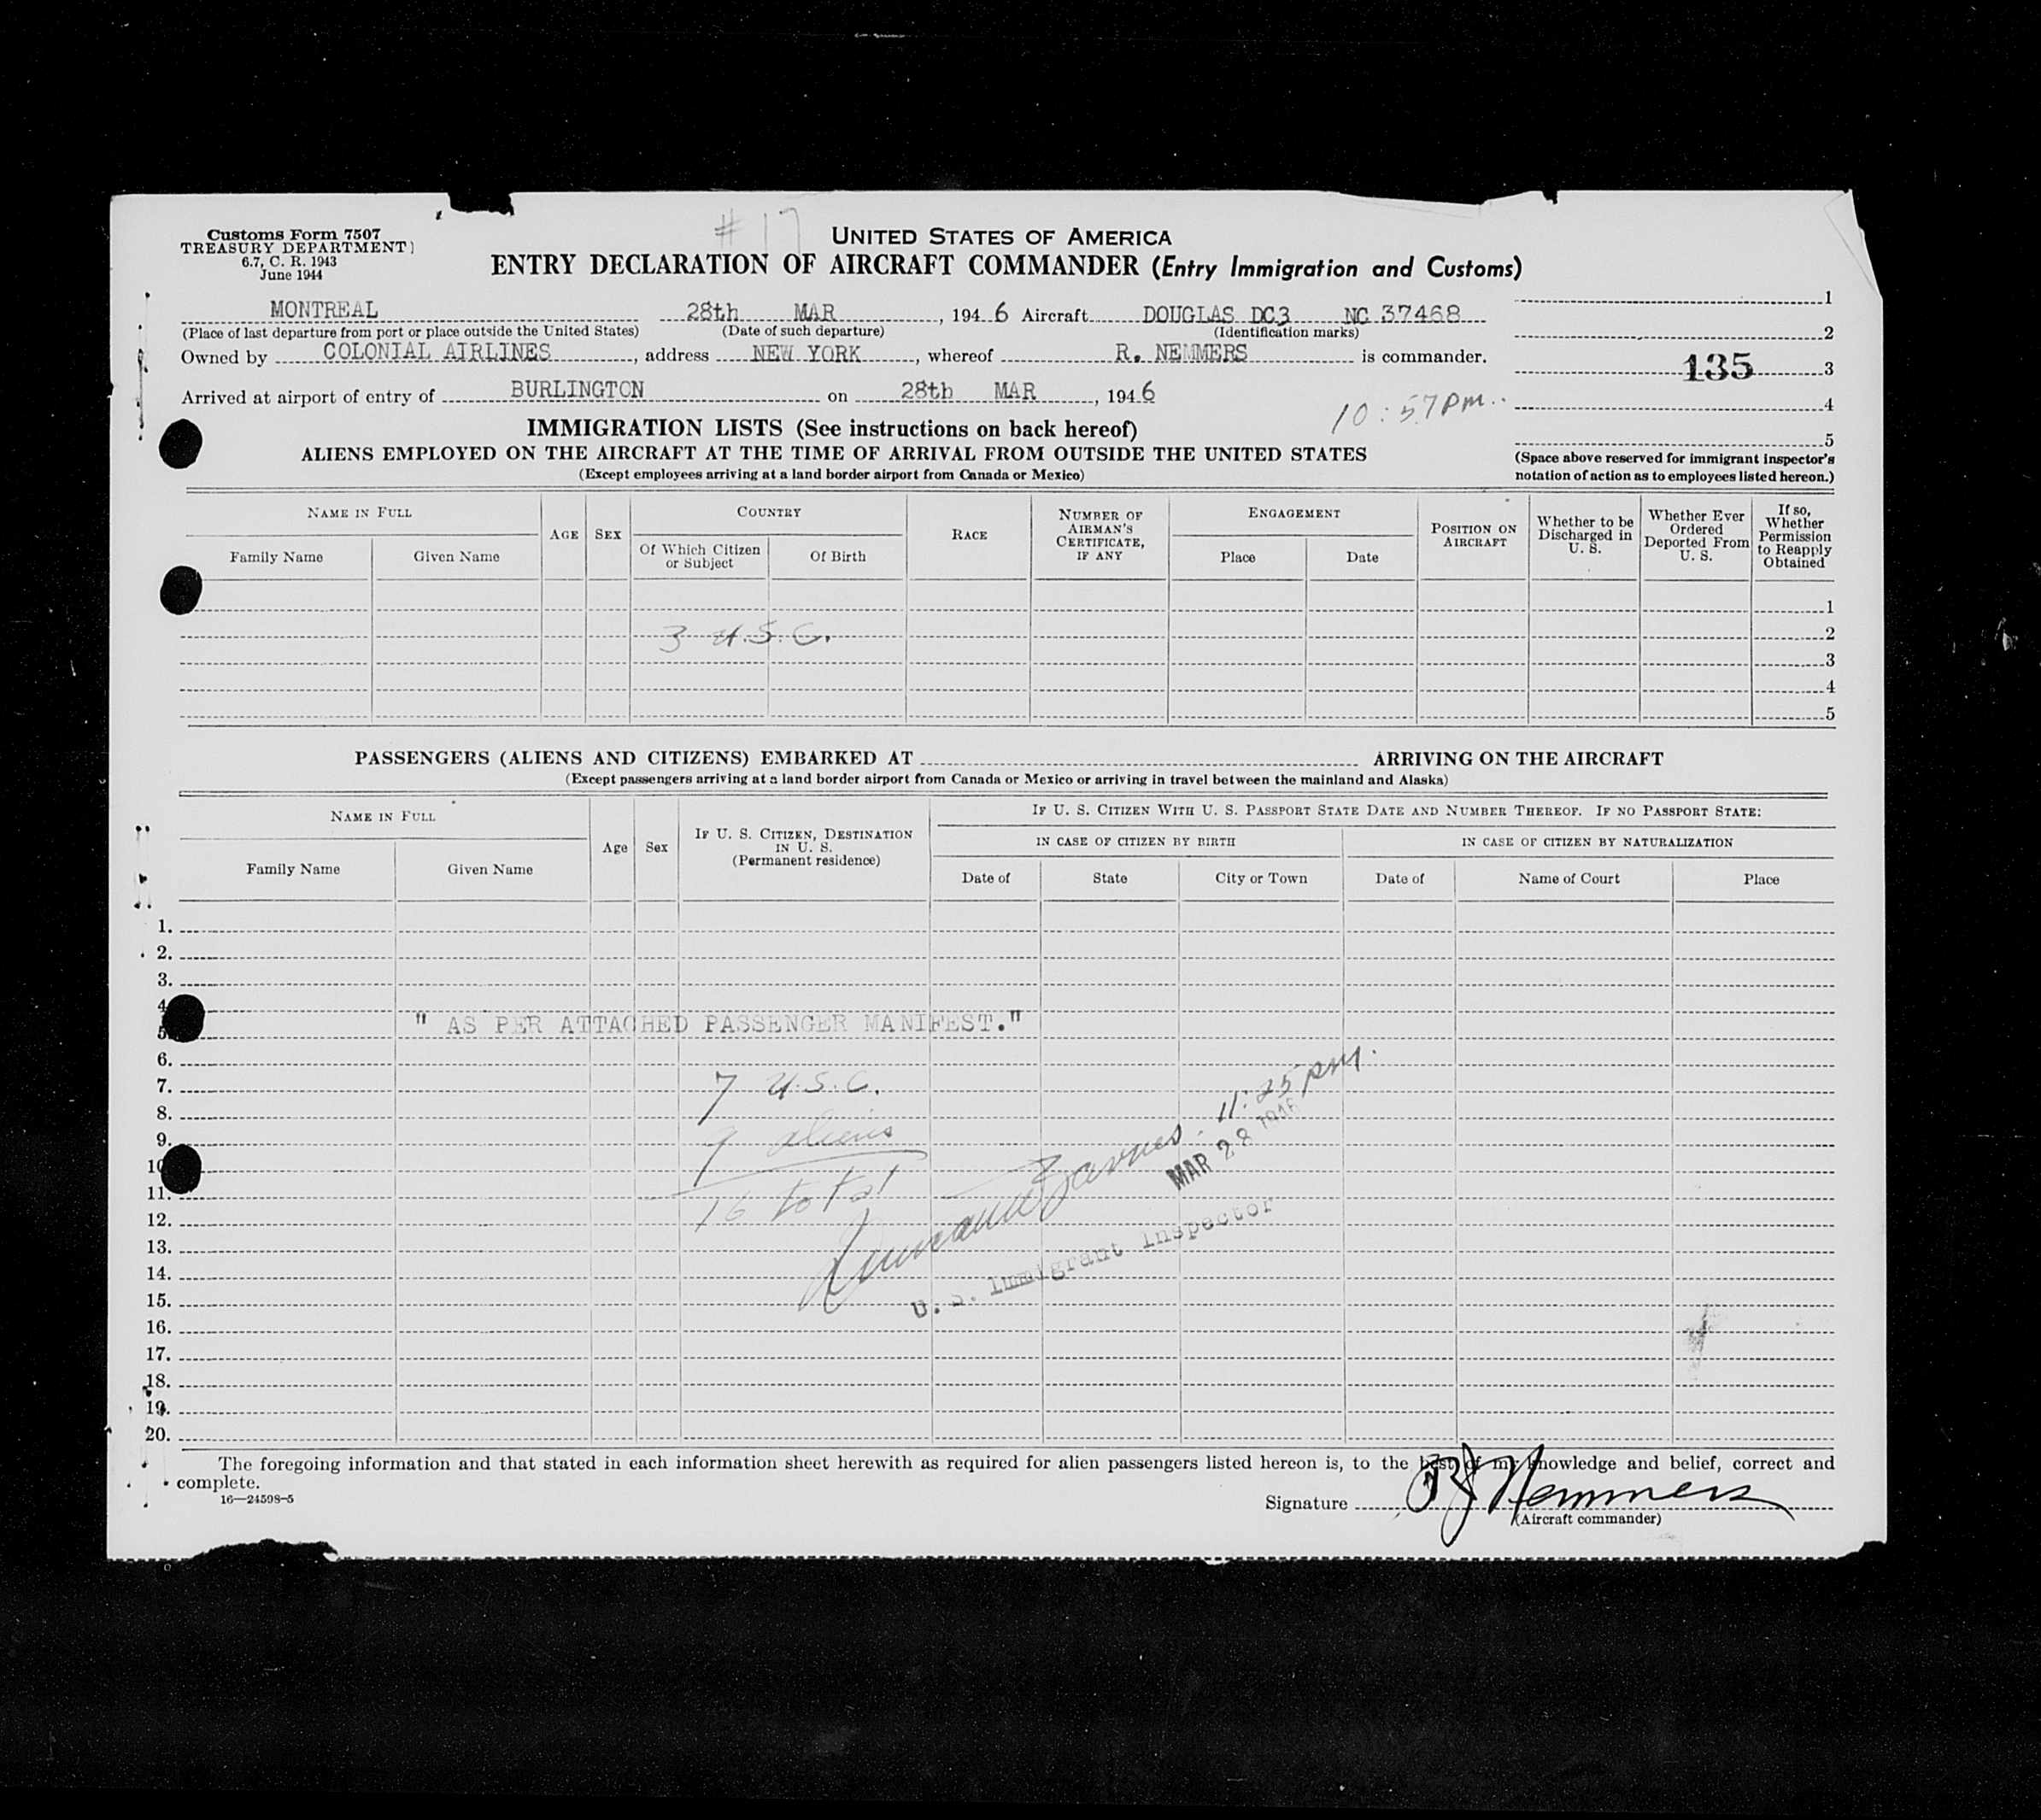 # 17
Customs Form 7507
TREASURY DEPARTMENT
6.7, C. R. 1943
June 1944
UNITED STATES OF AMERICA
ENTRY DECLARATION OF AIRCRAFT COMMANDER (Entry Immigration and Customs)
MONTREAL 28th MAR, 1946 Aircraft DOUGLAS DC3 NC 37468
(Place of last departure from port or place outside the United States) (Date of such departure) (Identification marks)
Owned by COLONIAL AIRLINES, address NEW YORK, whereof R. NEMMERS is commander.
Arrived at airport of entry of BURLINGTON on 28th MAR, 1946
10:57 PM.
1
2
135 3
4
5
(Space above reserved for immigrant inspector's notation of action as to employees listed hereon.)
IMMIGRATION LISTS (See instructions on back hereof)
ALIENS EMPLOYED ON THE AIRCRAFT AT THE TIME OF ARRIVAL FROM OUTSIDE THE UNITED STATES
(Except employees arriving at a land border airport from Canada or Mexico)
NAME IN FULL
Family Name Given Name
AGE SEX
COUNTRY
Of Which Citizen or Subject Of Birth
RACE
NUMBER OF AIRMAN'S CERTIFICATE, IF ANY
ENGAGEMENT
Place Date
POSITION ON AIRCRAFT
Whether to be Discharged in U. S.
Whether Ever Ordered Deported From U. S.
If so, Whether Permission to Reapply Obtained
1
3 U.S.C. 2
3
4
5
PASSENGERS (ALIENS AND CITIZENS) EMBARKED AT ARRIVING ON THE AIRCRAFT
(Except passengers arriving at a land border airport from Canada or Mexico or arriving in travel between the mainland and Alaska)
NAME IN FULL
Family Name Given Name
Age Sex
IF U. S. CITIZEN, DESTINATION IN U. S.
(Permanent residence)
IF U. S. CITIZEN WITH U. S. PASSPORT STATE DATE AND NUMBER THEREOF. IF NO PASSPORT STATE:
IN CASE OF CITIZEN BY BIRTH IN CASE OF CITIZEN BY NATURALIZATION
Date of State City or Town Date of Name of Court Place
1.
2.
3.
4
5.
" AS PER ATTACHED PASSENGER MANIFEST."
6.
7. 7 U.S.C.
8.
9. 9 aliens
10
11. 16 total
12.
13.
14.
15.
16.
17.
18.
19.
20.
11:25 PM.
MAR 28 1946
U. S. Immigrant Inspector
The foregoing information and that stated in each information sheet herewith as required for alien passengers listed hereon is, to the best of my knowledge and belief, correct and
complete.
16—24598-5
Signature RJ Nemmers
(Aircraft commander)